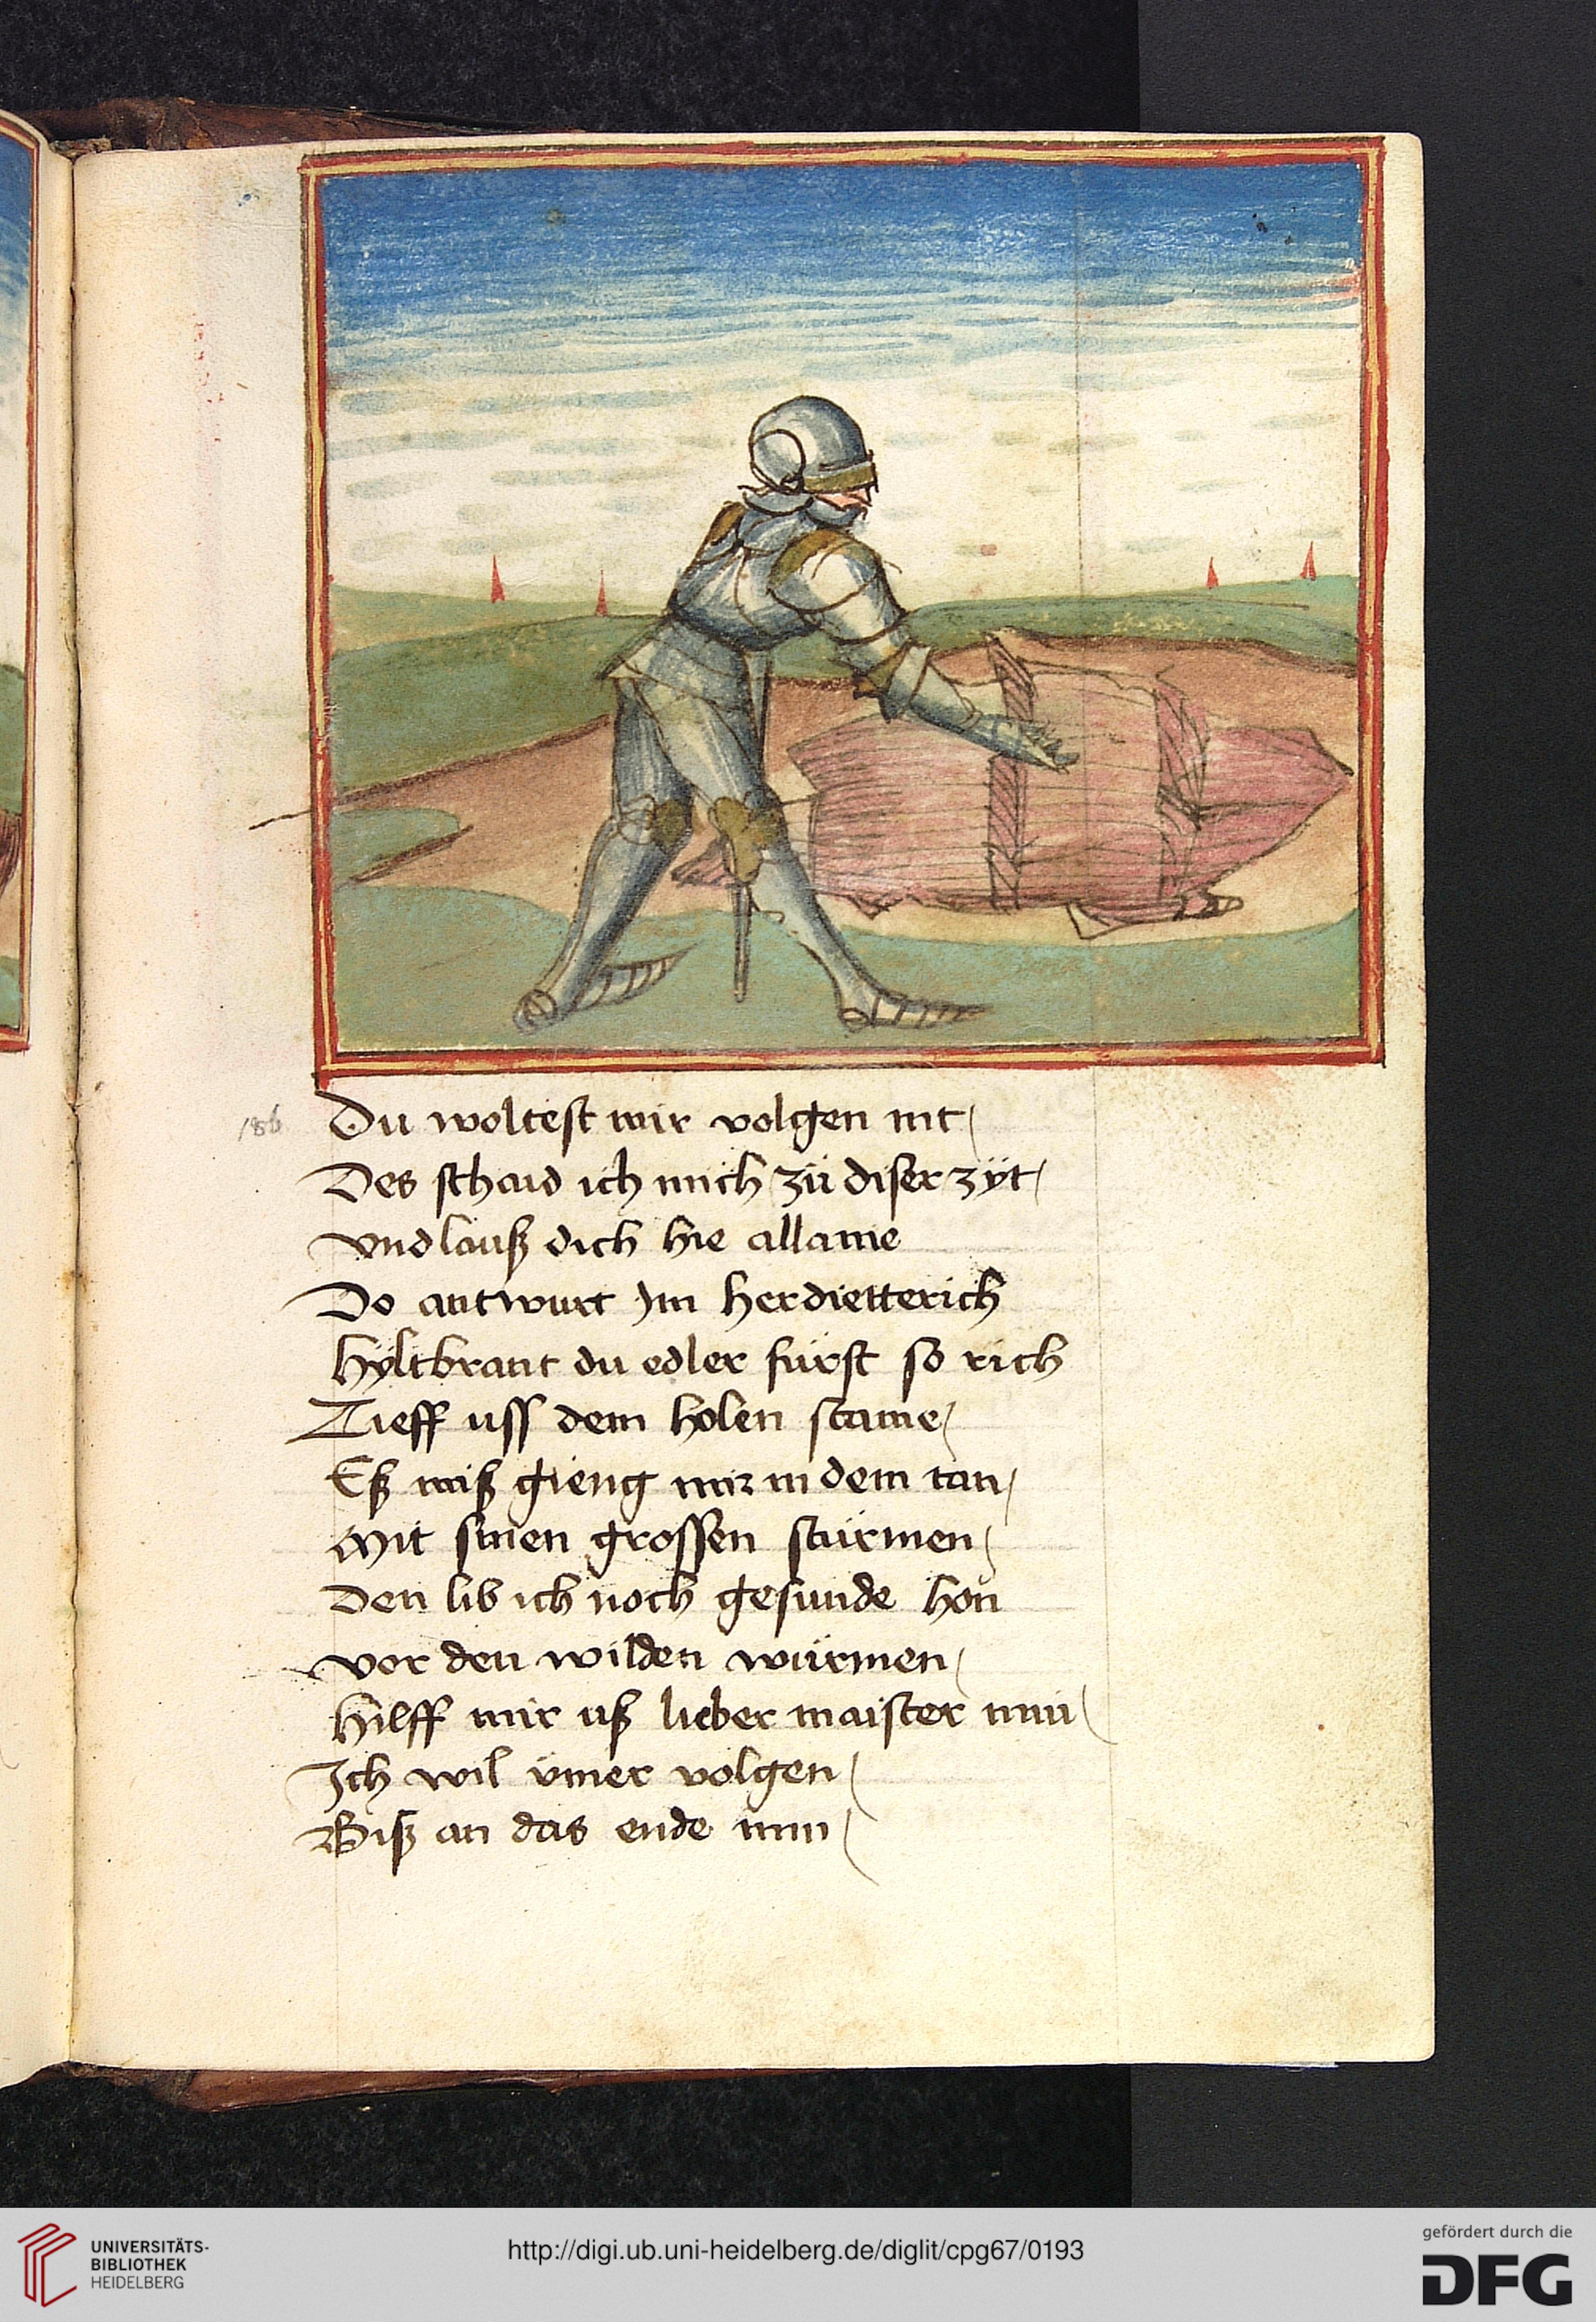 186
Du woltest mir volgen nit
Des schaid ich mich zü diser zÿt
vnd lauß dich hie allaine
Do antwurt Im her dietterich
hÿltbrant du edler fürst so rich
Tieff uss dem holen staine
Eß miß gieng mir in dem tan
Mit sinen grossen stürmen
Den lib ich noch gesunde hon
vor den wilden würmen
Hilff mir uß lieber maister min
Ich wil ümer volgen
Biß an das ende min
UNIVERSITÄTS-
BIBLIOTHEK
HEIDELBERG
http://digi.ub.uni-heidelberg.de/diglit/cpg67/0193
gefördert durch die
DFG